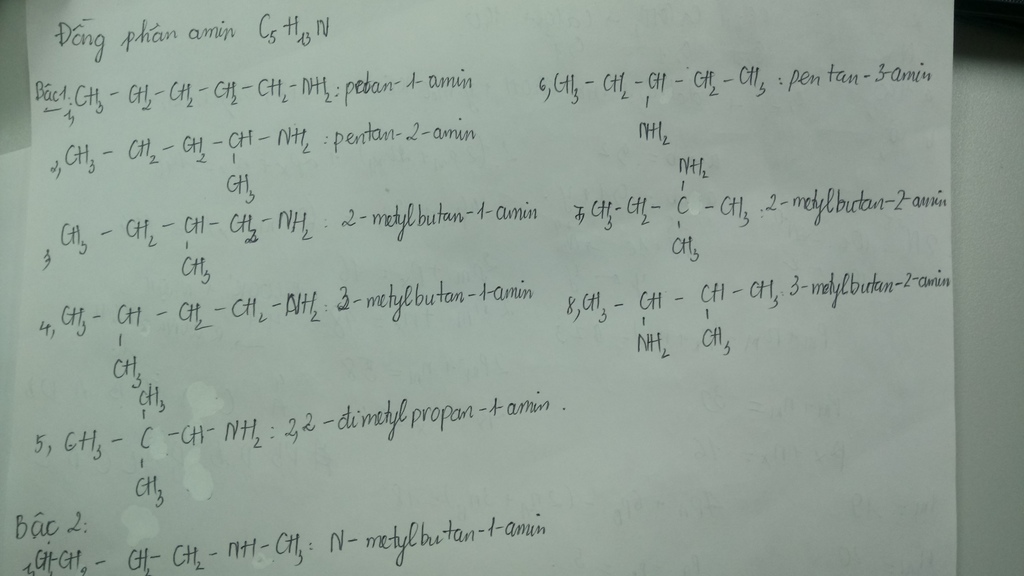 Đồng phân amin C5H13N
Bậc 1:
1, CH3 – CH2 – CH2 – CH2 – CH2 – NH2: petan-1-amin
2, CH3 – CH2 – CH2 – CH – NH2 : pentan-2-amin
CH3
3, CH3 – CH2 – CH – CH2 – NH2 : 2-metylbutan-1-amin
CH3
4, CH3 – CH – CH2 – CH2 – NH2: 3-metylbutan-1-amin
CH3
CH3
5, CH3 – C – CH – NH2: 2,2-dimetylpropan-1-amin.
CH3
6, CH3 – CH2 – CH – CH2 – CH3 : pentan-3-amin
NH2
NH2
7, CH3 – CH2 – C – CH3 : 2-metylbutan-2-amin
CH3
8, CH3 – CH – CH – CH3: 3-metylbutan-2-amin
NH2 CH3
Bậc 2:
1, CH3CH2 – CH2 – CH2 – NH – CH3: N-metylbutan-1-amin